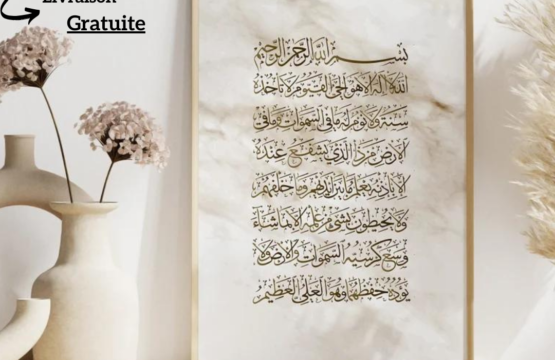 Livraison
Gratuite
بسم الله الرحمن الرحيم
الله لا إله إلا هو الحي القيوم لا تأخذه
سنة ولا نوم له ما في السموات وما في
الأرض من ذا الذي يشفع عنده
إلا بإذنه يعلم ما بين أيديهم وما خلفهم
ولا يحيطون بشيء من علمه إلا بما شاء
وسع كرسيه السموات والأرض ولا
يؤده حفظهما وهو العلي العظيم